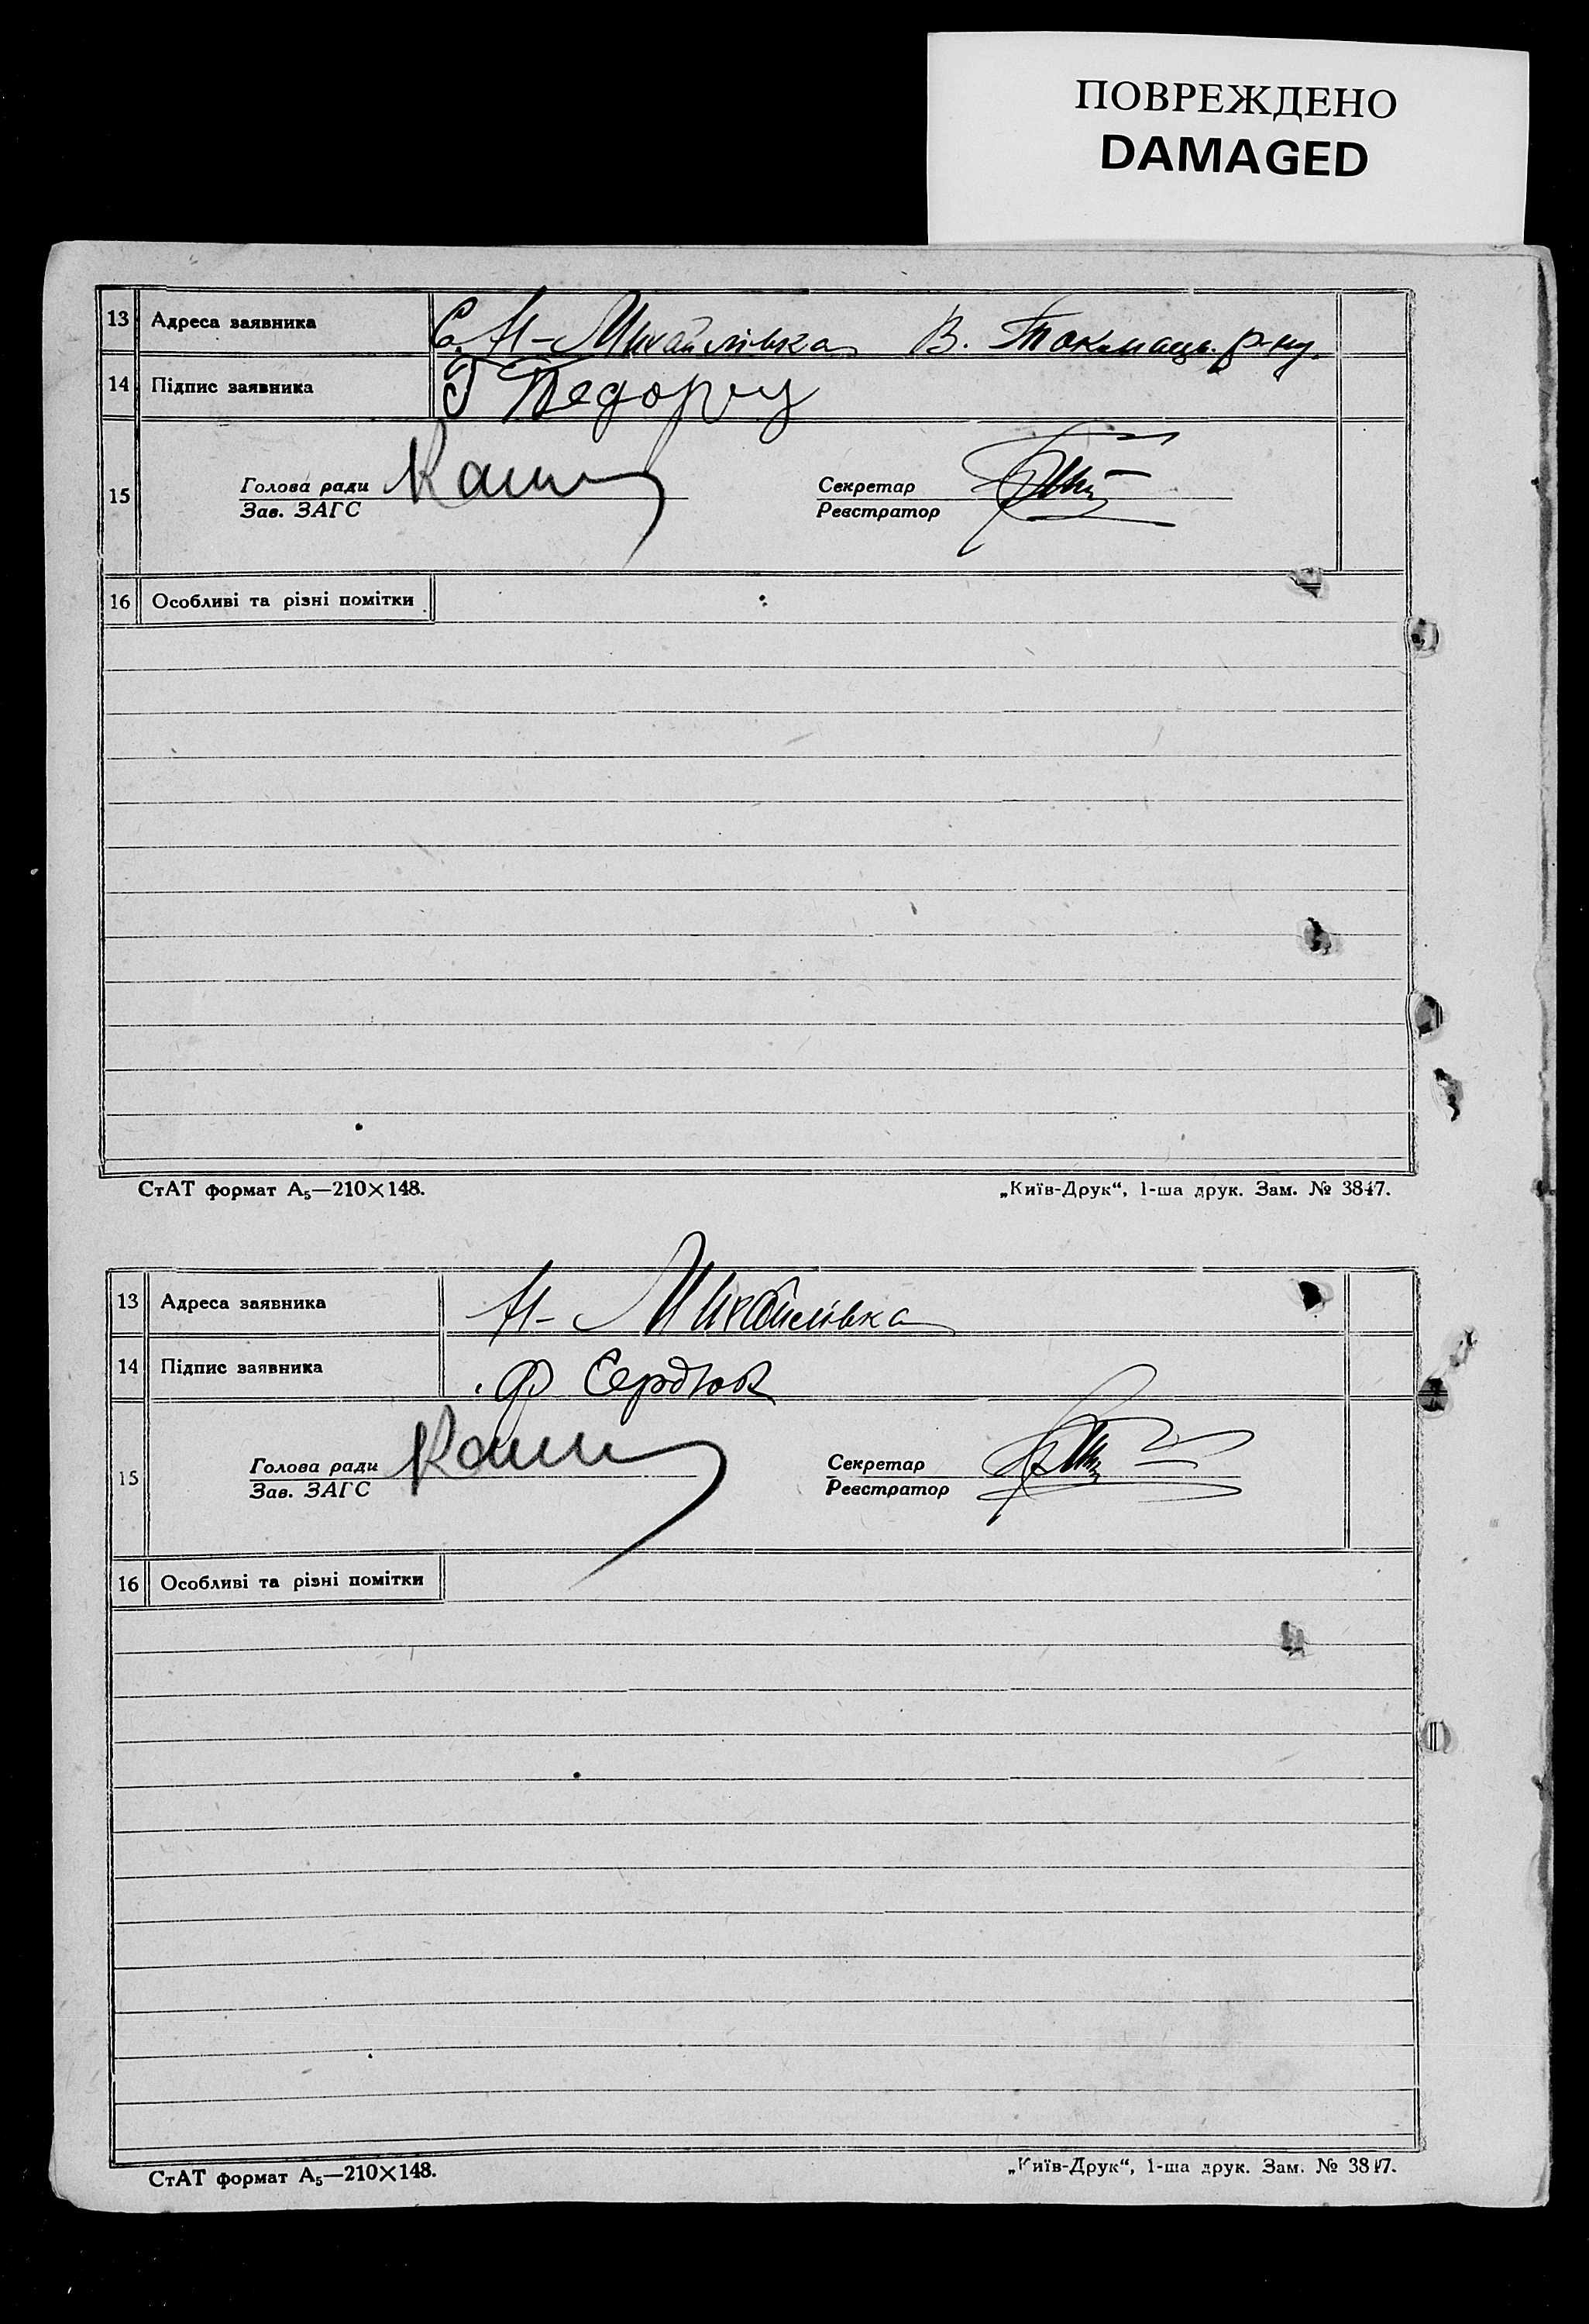 ПОВРЕЖДЕНО
DAMAGED
13 Адреса заявника С. Н-Михайлівка В. Токмаць. р-ну.
14 Підпис заявника
15 Голова ради Секретар
Зав. ЗАГС Реєстратор
16 Особливі та різні помітки
СтАТ формат А5—210×148. „Київ-Друк“, 1-ша друк. Зам. № 3847.
13 Адреса заявника Н-Михайлівка
14 Підпис заявника Ф Сердюк
15 Голова ради Секретар
Зав. ЗАГС Реєстратор
16 Особливі та різні помітки
СтАТ формат А5—210×148. „Київ-Друк“, 1-ша друк. Зам. № 3847.